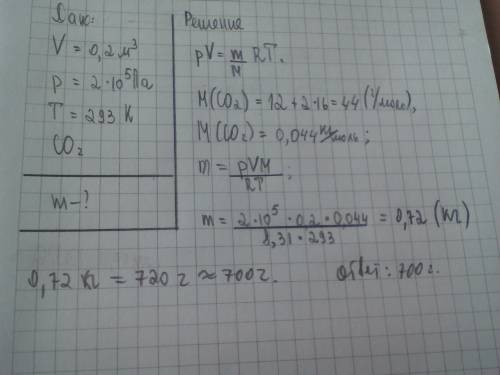 Дано:
V = 0,2 м³
p = 2·10⁵ Па
T = 293 К
CO₂
m-?
Решение
pV = m/M RT.
M(CO₂) = 12 + 2·16 = 44 (г/моль),
M(CO₂) = 0,044 кг/моль;
m = pVM/RT;
m = 2·10⁵·0,2·0,044/8,31·293 = 0,72 (кг)
0,72 кг = 720 г ≈ 700 г.
Ответ: 700 г.